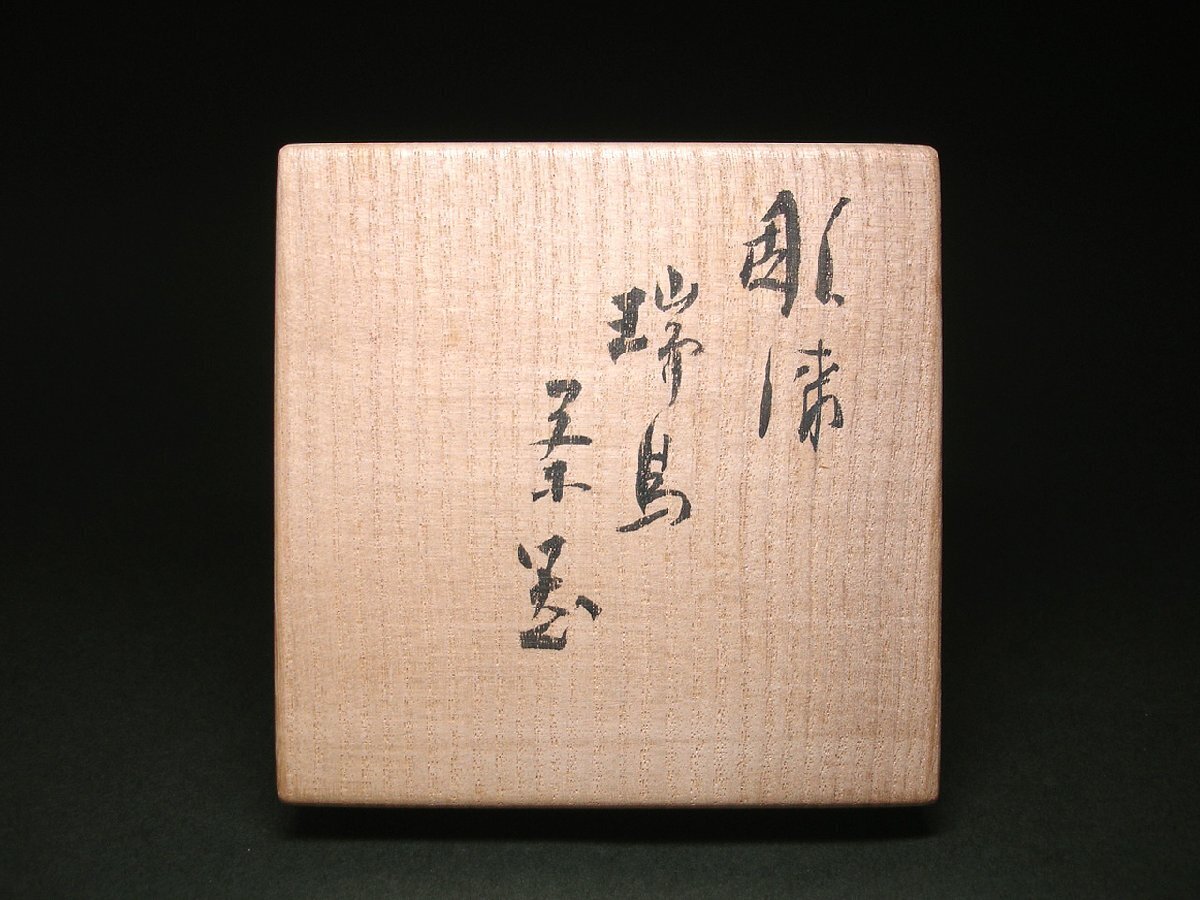 彫漆
瑞鳥
茶器